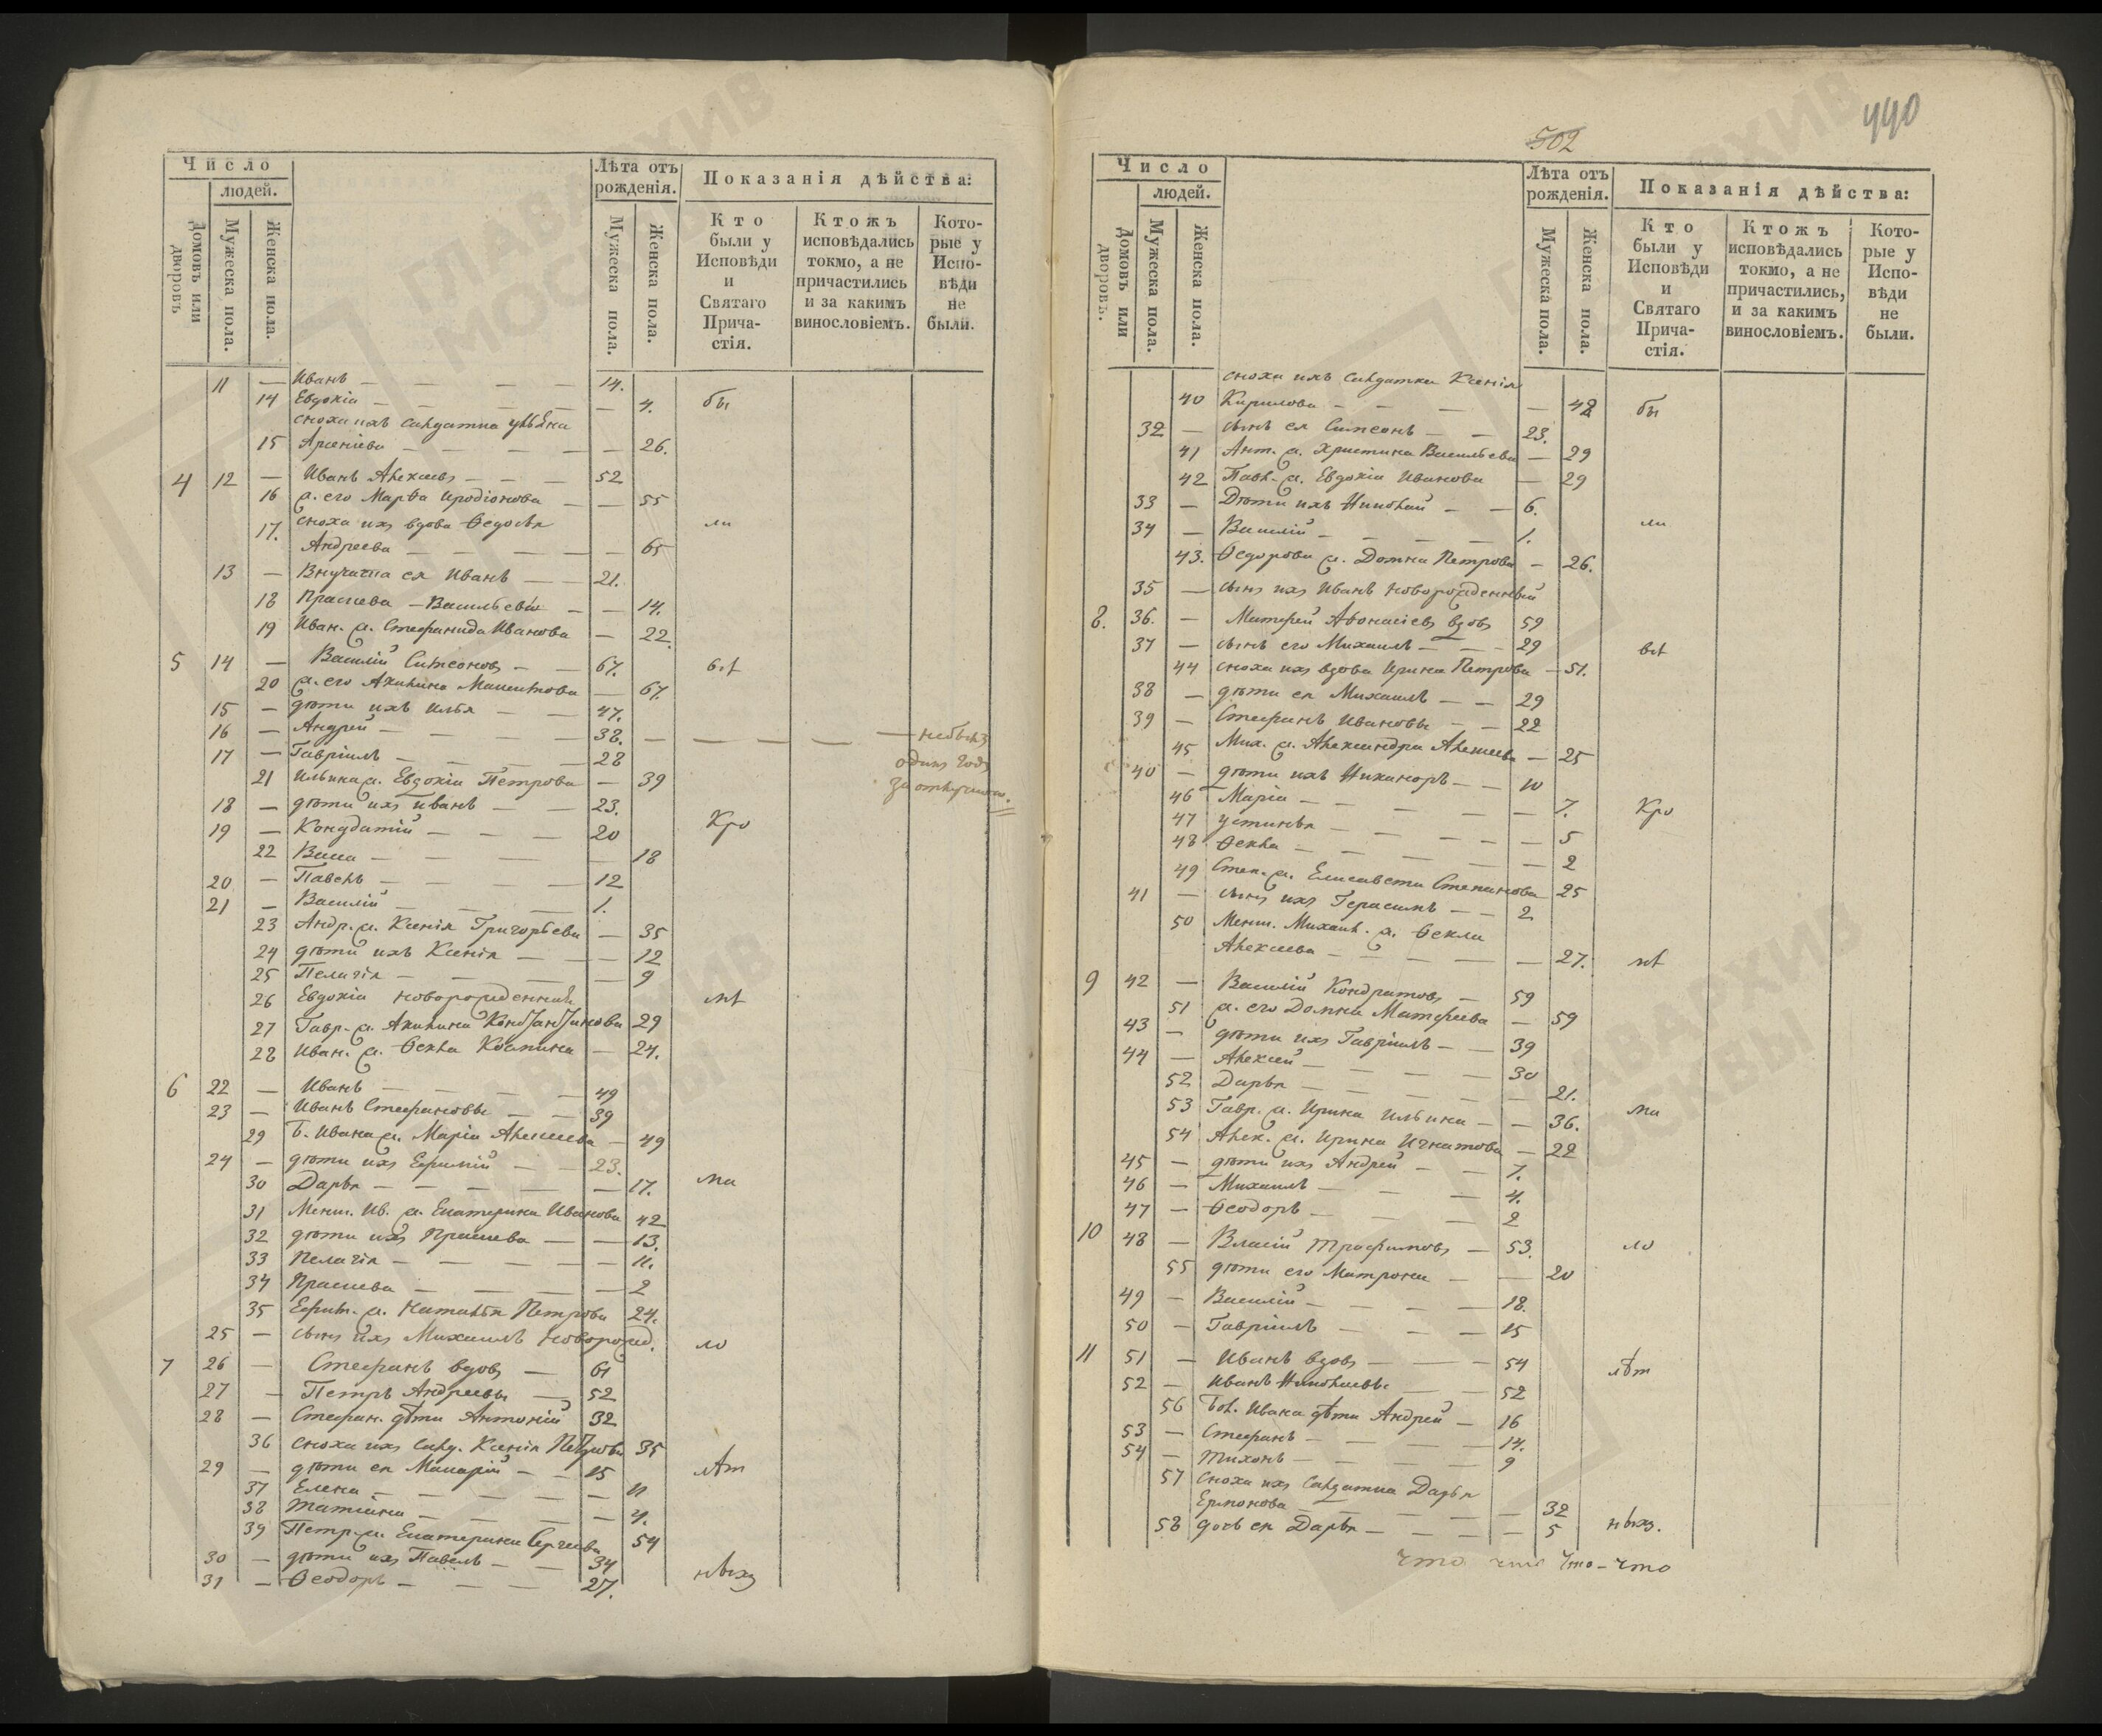 Число
людей.
Домовъ или дворовъ
Мужеска пола.
Женска пола.
Лѣта отъ рожденія.
Мужеска пола.
Женска пола.
Показанія дѣйства:
Кто были у Исповѣди и Святаго Прича-стія.
Ктожъ исповѣдались токмо, а не причастились и за какимъ винословіемъ.
Кото-рые у Испо-вѣди не были.
11 — Иванъ — — — — 14.
14 Евдокія — — — — — 4. бы
сноха ихъ солдатка
15 Арсеніева — — — — — 26.
4 12 — Иванъ Алексѣевъ — — — 52
16 ж. его Марѳа Иродіонова — — 55
17. сноха ихъ вдова Ѳедосья ли
Андреева — — — — — 65
13 — Внучата ея Иванъ — — 21.
18 Прасковья — Васильевы — — 14.
19 Иван. ж. Стефанида Иванова — 22
5 14 — Василій Симеоновъ — — 67. всѣ
20 ж. его Акилина — 67.
15 — дѣти ихъ Илья — — 47.
16 — Андрей — — — — 38. — — — — — небылъ
17 — Гавріилъ — — — — 28 одинъ годъ
21 Ильина ж. Евдокія Петрова — 39 за отлучкою.
18 — дѣти ихъ Иванъ — — 23.
19 — Кондратій — — — 20 Кро
22 Васса — — — — 18
20 — Павелъ — — — — 12
21 — Василій — — — 1.
23 Андр. ж. Ксенія Григорьева — 35
24 дѣти ихъ Ксенія — — — 12
25 Пелагія — — — — 9
26 Евдокія новорожденная мѣ
27 Гавр. ж. Акилина Константинова 29
28 Иван. ж. Ѳекла Космина — 24.
6 22 — Иванъ — — — — 49
23 — Иванъ Стефановы — — 39
29 Б. Ивана ж. Марія Алексѣева — 49
24 — дѣти ихъ Ефимій — — 23.
30 Дарья — — — — — 17. ма
31 Менш. Ив. ж. Екатерина Иванова 42
32 дѣти ихъ Прасковья — — 13.
33 Пелагія — — — — — 11.
34 Прасковья — — — — 2
35 Ефим. ж. Наталья Петрова 24.
25 — сынъ ихъ Михаилъ новорожд. ло
7 26 — Стефанъ вдовъ — 61
27 — Петръ Андреевы — 52
28 — Стефан. дѣти Антоній 32
36 сноха ихъ солд. Ксенія Петрова 35
29 — дѣти ея Макарій — — 15 лѣт
37 Елена — — — — — 11
38 Татіана — — — — — 4.
39 Петр. ж. Екатерина Сергеева 54
30 — дѣти ихъ Павелъ — — 34
31 — Ѳеодоръ — — — 27. нихъ
502
440
Число
людей.
Домовъ или дворовъ.
Мужеска пола.
Женска пола.
Лѣта отъ рожденія.
Мужеска пола.
Женска пола.
Показанія дѣйства:
Кто были у Исповѣди и Святаго Прича-стія.
Ктожъ исповѣдались токмо, а не причастились, и за какимъ винословіемъ.
Кото-рые у Испо-вѣди не были.
сноха ихъ солдатка Ксенія
40 Кирилова — — — — 48 бы
32 — сынъ ея Симеонъ — — 23.
41 Ант. ж. Христина Васильева — 29
42 Павл. ж. Евдокія Иванова — 29
33 — Дѣти ихъ Николай — — 6.
34 — Василій — — — — 1. ли
43. Ѳедорова ж. Домна Петрова — 26.
35 — сынъ ихъ Иванъ новорожденный
8. 36. — Матфей Аѳонасіевъ вдовъ 59
37 — сынъ его Михаилъ — — — 29 всѣ
44 сноха ихъ вдова Ирина Петрова — 51.
38 — дѣти ея Михаилъ — — 29
39 — Стефанъ Ивановы — — 22
45 Мих. ж. Александра Алексѣева — 25
40 — дѣти ихъ Никаноръ — — 10
46 Марія — — — — — 7. Кро
47 Устинья — — — — — 5
48 Ѳекла — — — — — 2
49 Стеф. ж. Елисавета Степанова 25
41 — сынъ ихъ Герасимъ — — 2
50 Менш. Михаил. ж. Ѳекла
Алексѣева — — — — — 27. мѣ
9 42 — Василій Кондратовъ — 59
51 ж. его Домна Матфеева — 59
43 — дѣти ихъ Гавріилъ — — 39
44 — Алексѣй — — — — 30
52 Дарья — — — — — 21.
53 Гавр. ж. Ирина Ильина — — 36. ма
54 Алек. ж. Ирина Игнатова — 22
45 — дѣти ихъ Андрей — — 7.
46 — Михаилъ — — — 4.
47 — Ѳеодоръ — — — 2
10 48 — Власій Трофимовъ — 53. ло
55 дѣти его Матрона — — 20
49 — Василій — — — — 18.
50 — Гавріилъ — — — 15
11 51 — Иванъ вдовъ — — — 54 лѣт
52 — Иванъ Николаевы — — 52
56 Бол. Ивана дѣти Андрей — 16
53 — Стефанъ — — — — 14.
54 — Тихонъ — — — — 9
57 Сноха ихъ солдатка Дарья
Ермонова — — — — — 32
58 дочь ея Дарья — — — — 5 нихъ.
что что что - что